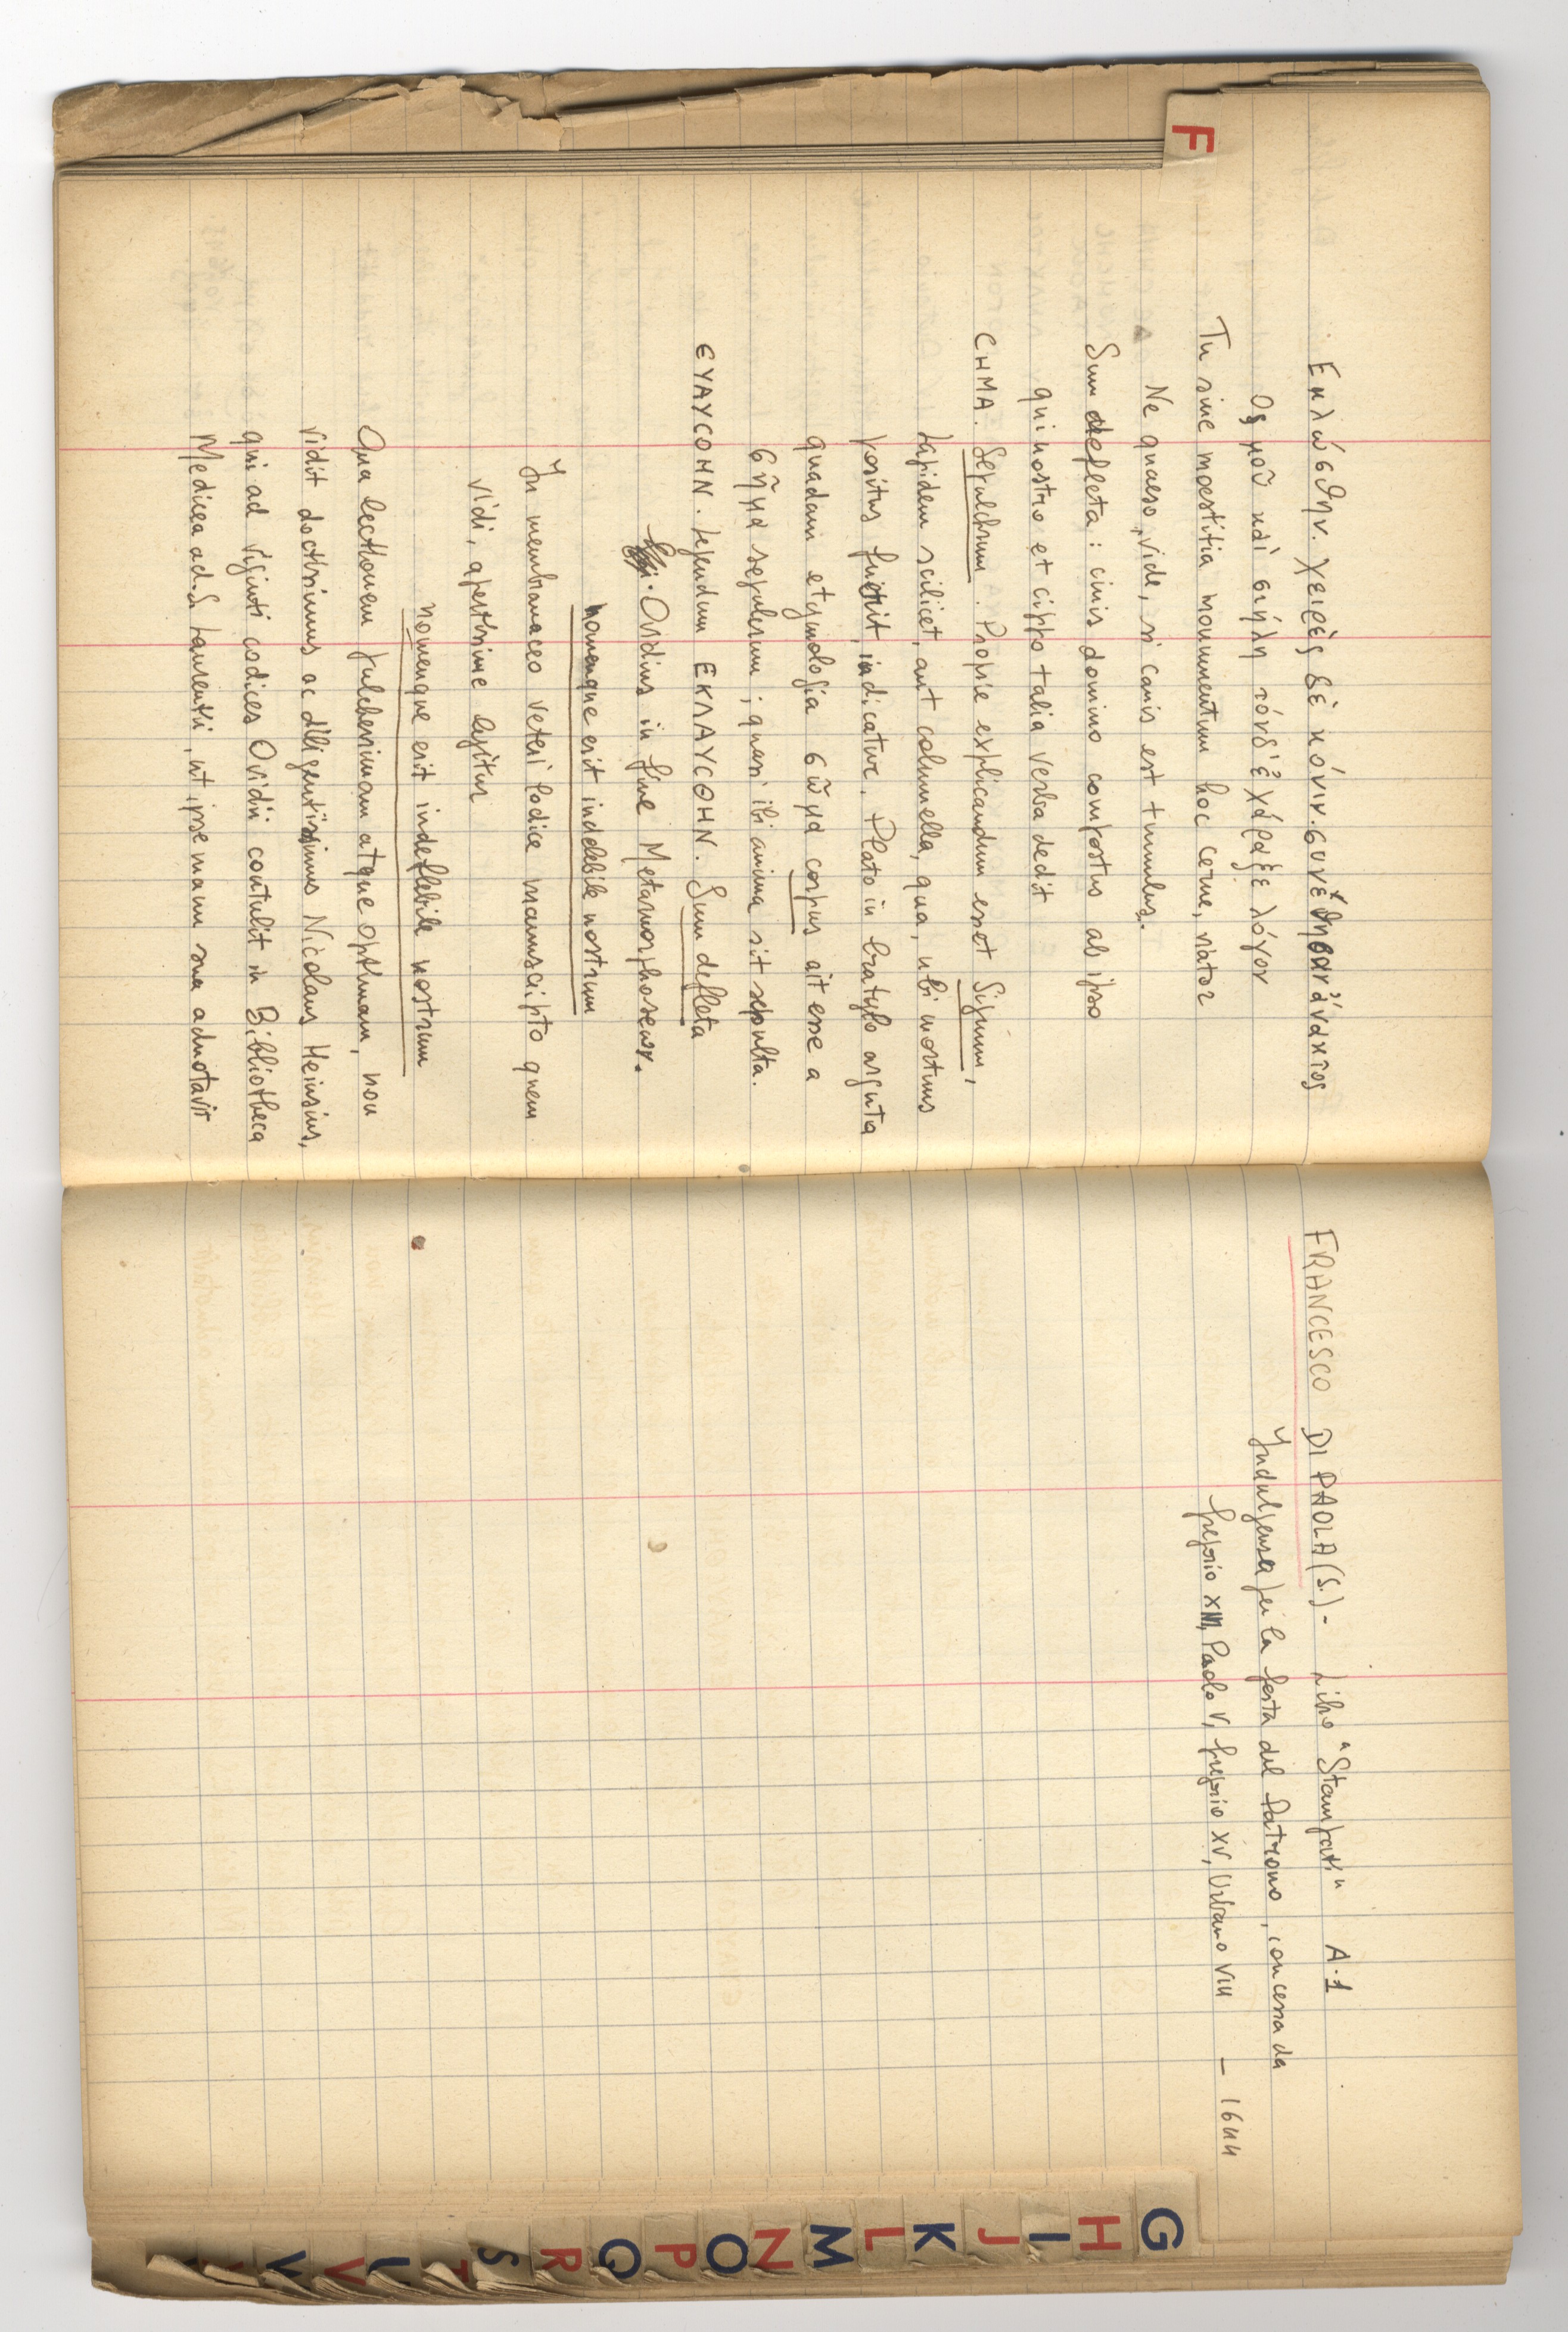 Εκλώσθην. χειρὲς δὲ κόνιν. συνέθησαν ἄνακτος
Ος μοῦ καὶ σιήλη τόνδ' ἐχάραξε λόγον
Tu sine moestitia monumentum hoc cerne, viator
Ne quaeso, vide, si canis est tumulus.
Sum defleta: cinis domino compostus ab ipso
qui nostro et cippo talia verba dedit
CHMA. Sepulchrum. Proprie explicandum esset Signum,
Lapidem scilicet, aut columella, qua, ubi mortuus
positus fuerit, indicatur. Plato in Cratylo arguta
quadam etymologia σῶμα corpus ait esse a
σῆμα sepulcrum; quasi ibi anima sit sepulta.
ΕΥΛΥCΘΗΝ. Legendum ΕΚΛΑΥCΘΗΝ. Sum defleta
Ovidius in fine Metamorphoseωv.
nomenque erit indelebile nostrum
In membranaceo veteri Codice manuscripto quem
vidi, apertissime legitur
nomenque erit indeflebile nostrum
Qua lectionem pulcherrimam atque optimam, non
vidit doctissimus ac diligentissimus Nicolaus Heinsius,
qui ad viginti codices Ovidii contulit in Bibliotheca
Medicea ad S. Laurentii, ut ipse manu sua adnotavit
F
FRANCESCO DI PAOLA (S.) - Libro "Stampati" A.1
Indulgenza per la festa del Patrono, concessa da
Gregorio XIII, Paolo V, Gregorio XV, Urbano VIII - 1644
G H I J K L M N O P Q R S T U V